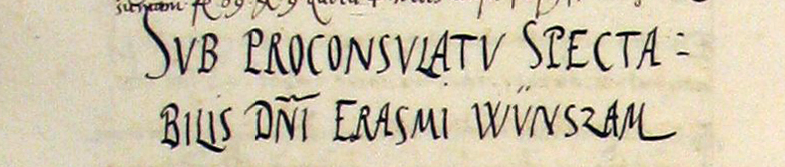 SVB PROCONSVLATV SPECTA=
BILIS DÑI ERASMI WÜNSZAM